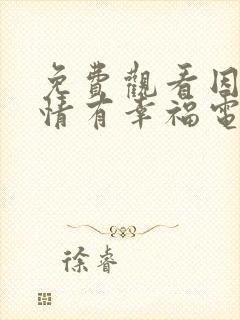 免費觀看因
情有幸福電
徐睿